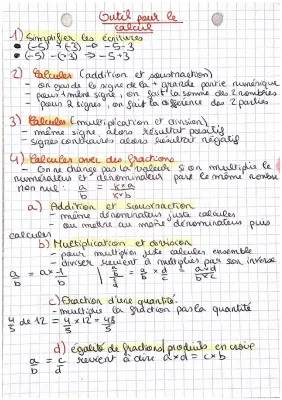 Outil pour le
calcul
1) Simplifier les écritures
• (-5) + (-3) → -5-3
• (-5) - (-3) → -5+3
2) Calculer (addition et soustraction)
- on garde le signe de la + grande partie numérique
- pour 1 même signe, on fait la somme des 2 nombres
- pour 2 signes, on fait la différence des 2 parties
3) Calculer (multiplication et division)
- même signe, alors résultat positif
- signes contraires alors résultat négatif
4) Calculer avec des fractions
- On ne change pas la valeur si on multiplie le
numérateur et dénominateur par le même nombre
non nul : a/b = k×a/k×b
a) Addition et Soustraction
- même dénominateur juste calculer
- ou mettre au même dénominateur puis
calculer
b) Multiplication et division
- pour multiplier juste calculer ensemble
- diviser revient à multiplier par son inverse
a/b = a×1/b | = a/b × d/c = a×d/b×c
c) Fraction d'une quantité
- multiplie la fraction par la quantité
4/5 de 12 = 4/5 × 12 = 48/5
d) égalité de fractions/produits en croix
a/b = c/d revient à dire a×d = c×b